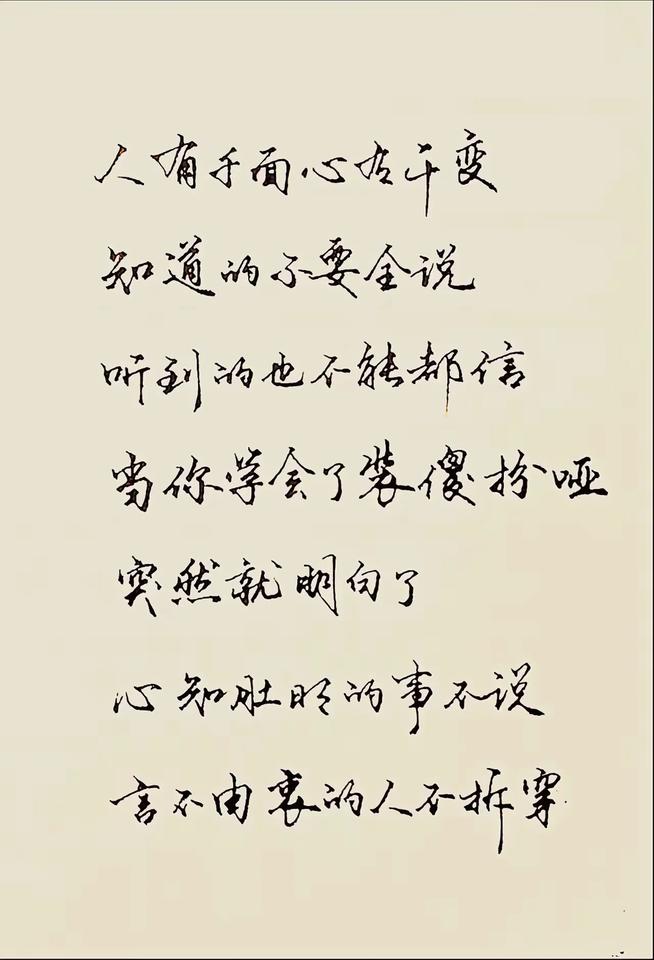 人有千面心有千变
知道的不要全说
听到的也不能都信
当你学会了装傻扮哑
突然就明白了
心知肚明的事不说
言不由衷的人不拆穿